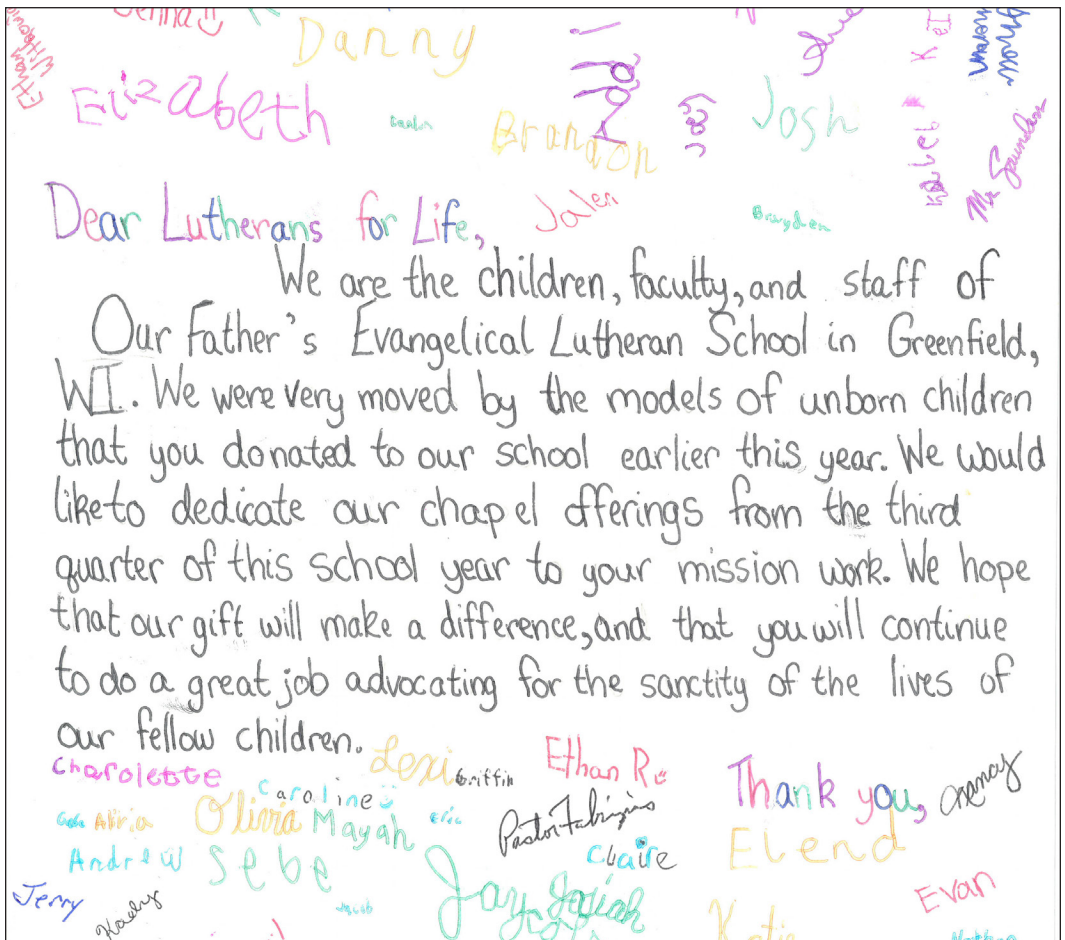 Jenna
Danny
Elizabeth
Brandon
Josh
Kalel K
Mr. Saunders
Jalen
Brayden
Dear Lutherans for Life,
We are the children, faculty, and staff of
Our Father's Evangelical Lutheran School in Greenfield,
WI. We were very moved by the models of unborn children
that you donated to our school earlier this year. We would
liketo dedicate our chapel offerings from the third
quarter of this school year to your mission work. We hope
that our gift will make a difference, and that you will continue
to do a great job advocating for the sanctity of the lives of
our fellow children.
Lexi
Griffin
Ethan R
Charolette
Caroline
Thank you,
Olivia
Mayah
Eric
Pastor Fabrizius
Andrew
Sebe
Claire
Elend
Jerry
Jacob
Jay
Josiah
Evan
Katie